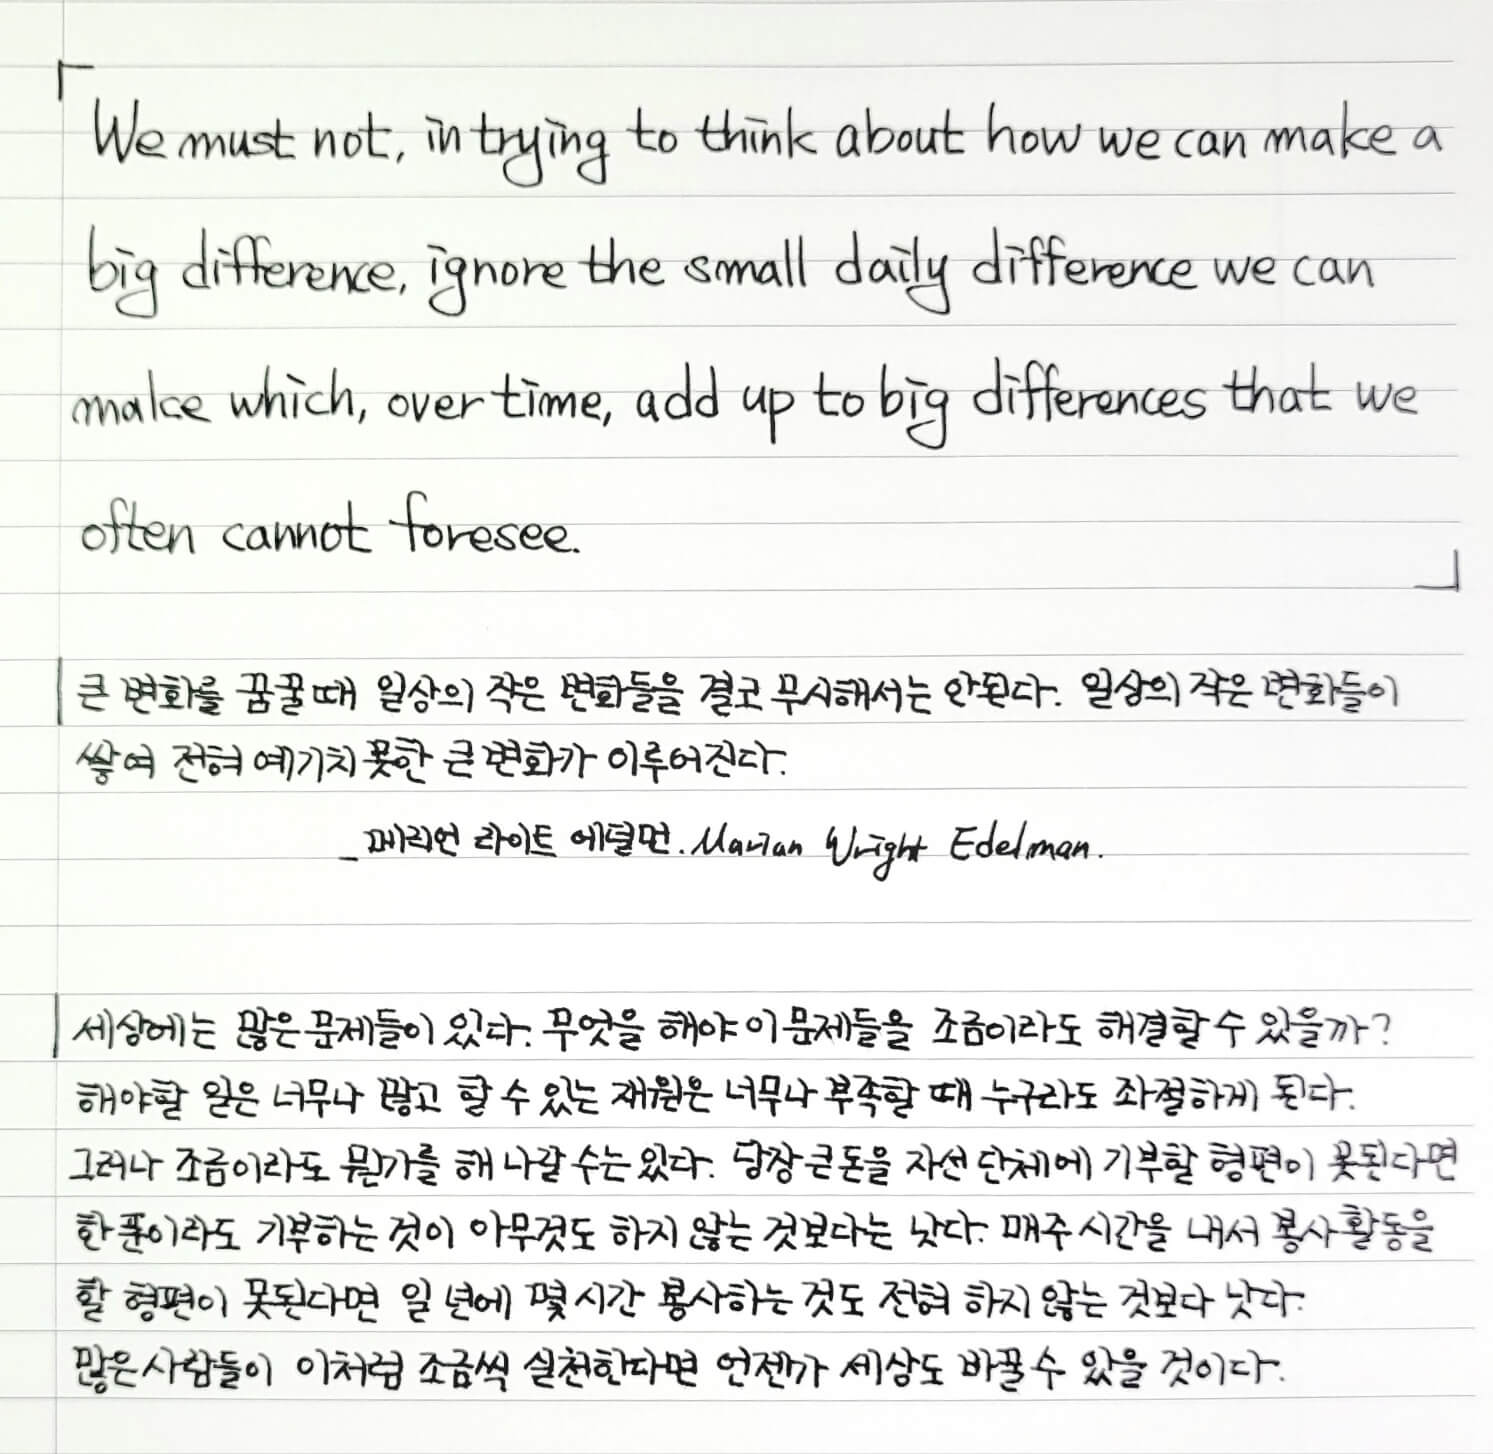 「We must not, in trying to think about how we can make a
big difference, ignore the small daily difference we can
make which, over time, add up to big differences that we
often cannot foresee.」
큰 변화를 꿈꿀 때 일상의 작은 변화들을 결코 무시해서는 안된다. 일상의 작은 변화들이
쌓여 전혀 예기치 못한 큰 변화가 이루어진다.
_메리언 라이트 에덜먼. Marian Wright Edelman.
세상에는 많은 문제들이 있다. 무엇을 해야 이 문제들을 조금이라도 해결할 수 있을까?
해야할 일은 너무나 많고 할 수 있는 재원은 너무나 부족할 때 누구라도 좌절하게 된다.
그러나 조금이라도 뭔가를 해 나갈 수는 있다. 당장 큰 돈을 자선 단체에 기부할 형편이 못된다면
한 푼이라도 기부하는 것이 아무것도 하지 않는 것보다는 낫다. 매주 시간을 내서 봉사 활동을
할 형편이 못된다면 일 년에 몇 시간 봉사하는 것도 전혀 하지 않는 것보다 낫다.
많은 사람들이 이처럼 조금씩 실천한다면 언젠가 세상도 바꿀 수 있을 것이다.